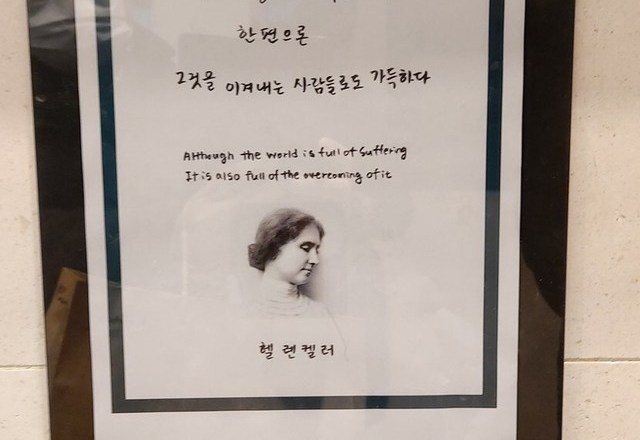 한편으론
그것을 이겨내는 사람들로도 가득하다
Although the world is full of suffering
It is also full of the overcoming of it
헬렌켈러